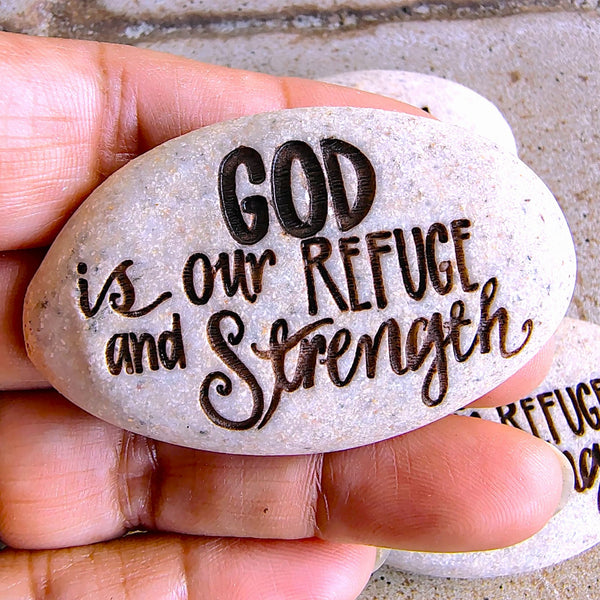 GOD
is our REFUGE
and Strength
REFUGE